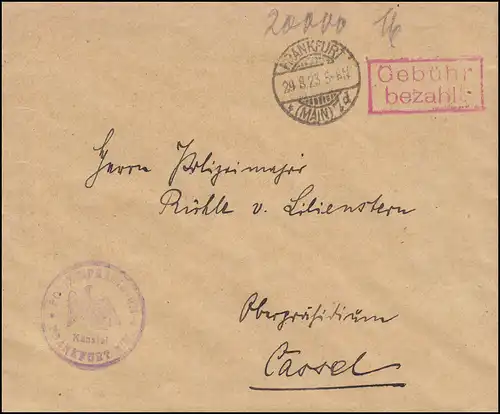 20000 M
FRANKFURT
29.8.23. 5-6N
* (MAIN) 2d
Gebühr
bezahlt
Herrn Polizeimajor
Rühle v. Lilienstern
POLIZEIPRÄSIDIUM
Kanzlei
FRANKFURT
Oberpräsidium
Cassel